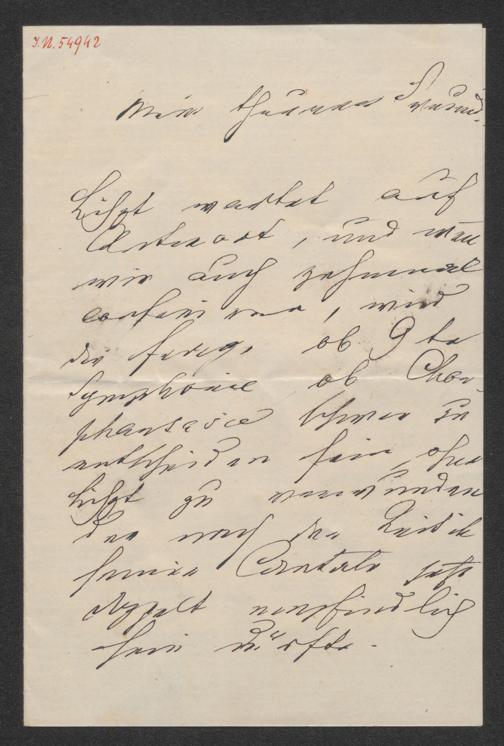 I.N. 54942
Mein theurer Freund.
Liszt wartet auf
Antwort, und wenn
wir auch zehnmal
conferiren, wird
die Frage, ob 9te
Symphonie ob Chor-
phantasie schwer zu
entscheiden sein, ohne
Liszt zu verwunden
der nach der Kritik
seiner Cantate jetzt
doppelt empfindlich
sein dürfte.